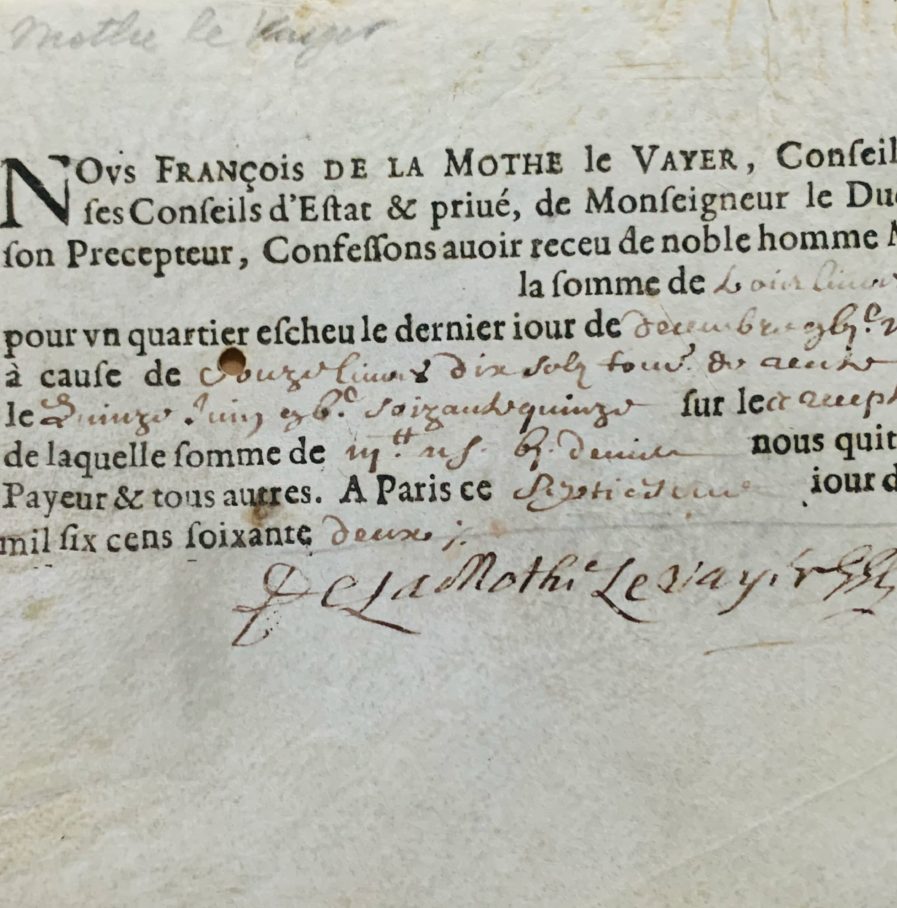 Mothe le Vayer
NOvs FRANÇOIS DE LA MOTHE le VAYER, Conſeil
ſes Conſeils d'Eſtat & priué, de Monſeigneur le Du
ſon Precepteur, Confeſſons auoir receu de noble homme
la ſomme de
pour vn quartier eſcheu le dernier iour de decembre
à cauſe de liures dix solz de rente
le Quinze Juin soixante quinze ſur le
de laquelle ſomme de nous quit
Payeur & tous autres. A Paris ce iour d
mil ſix cens ſoixante deux
De La Mothe Le Vayer